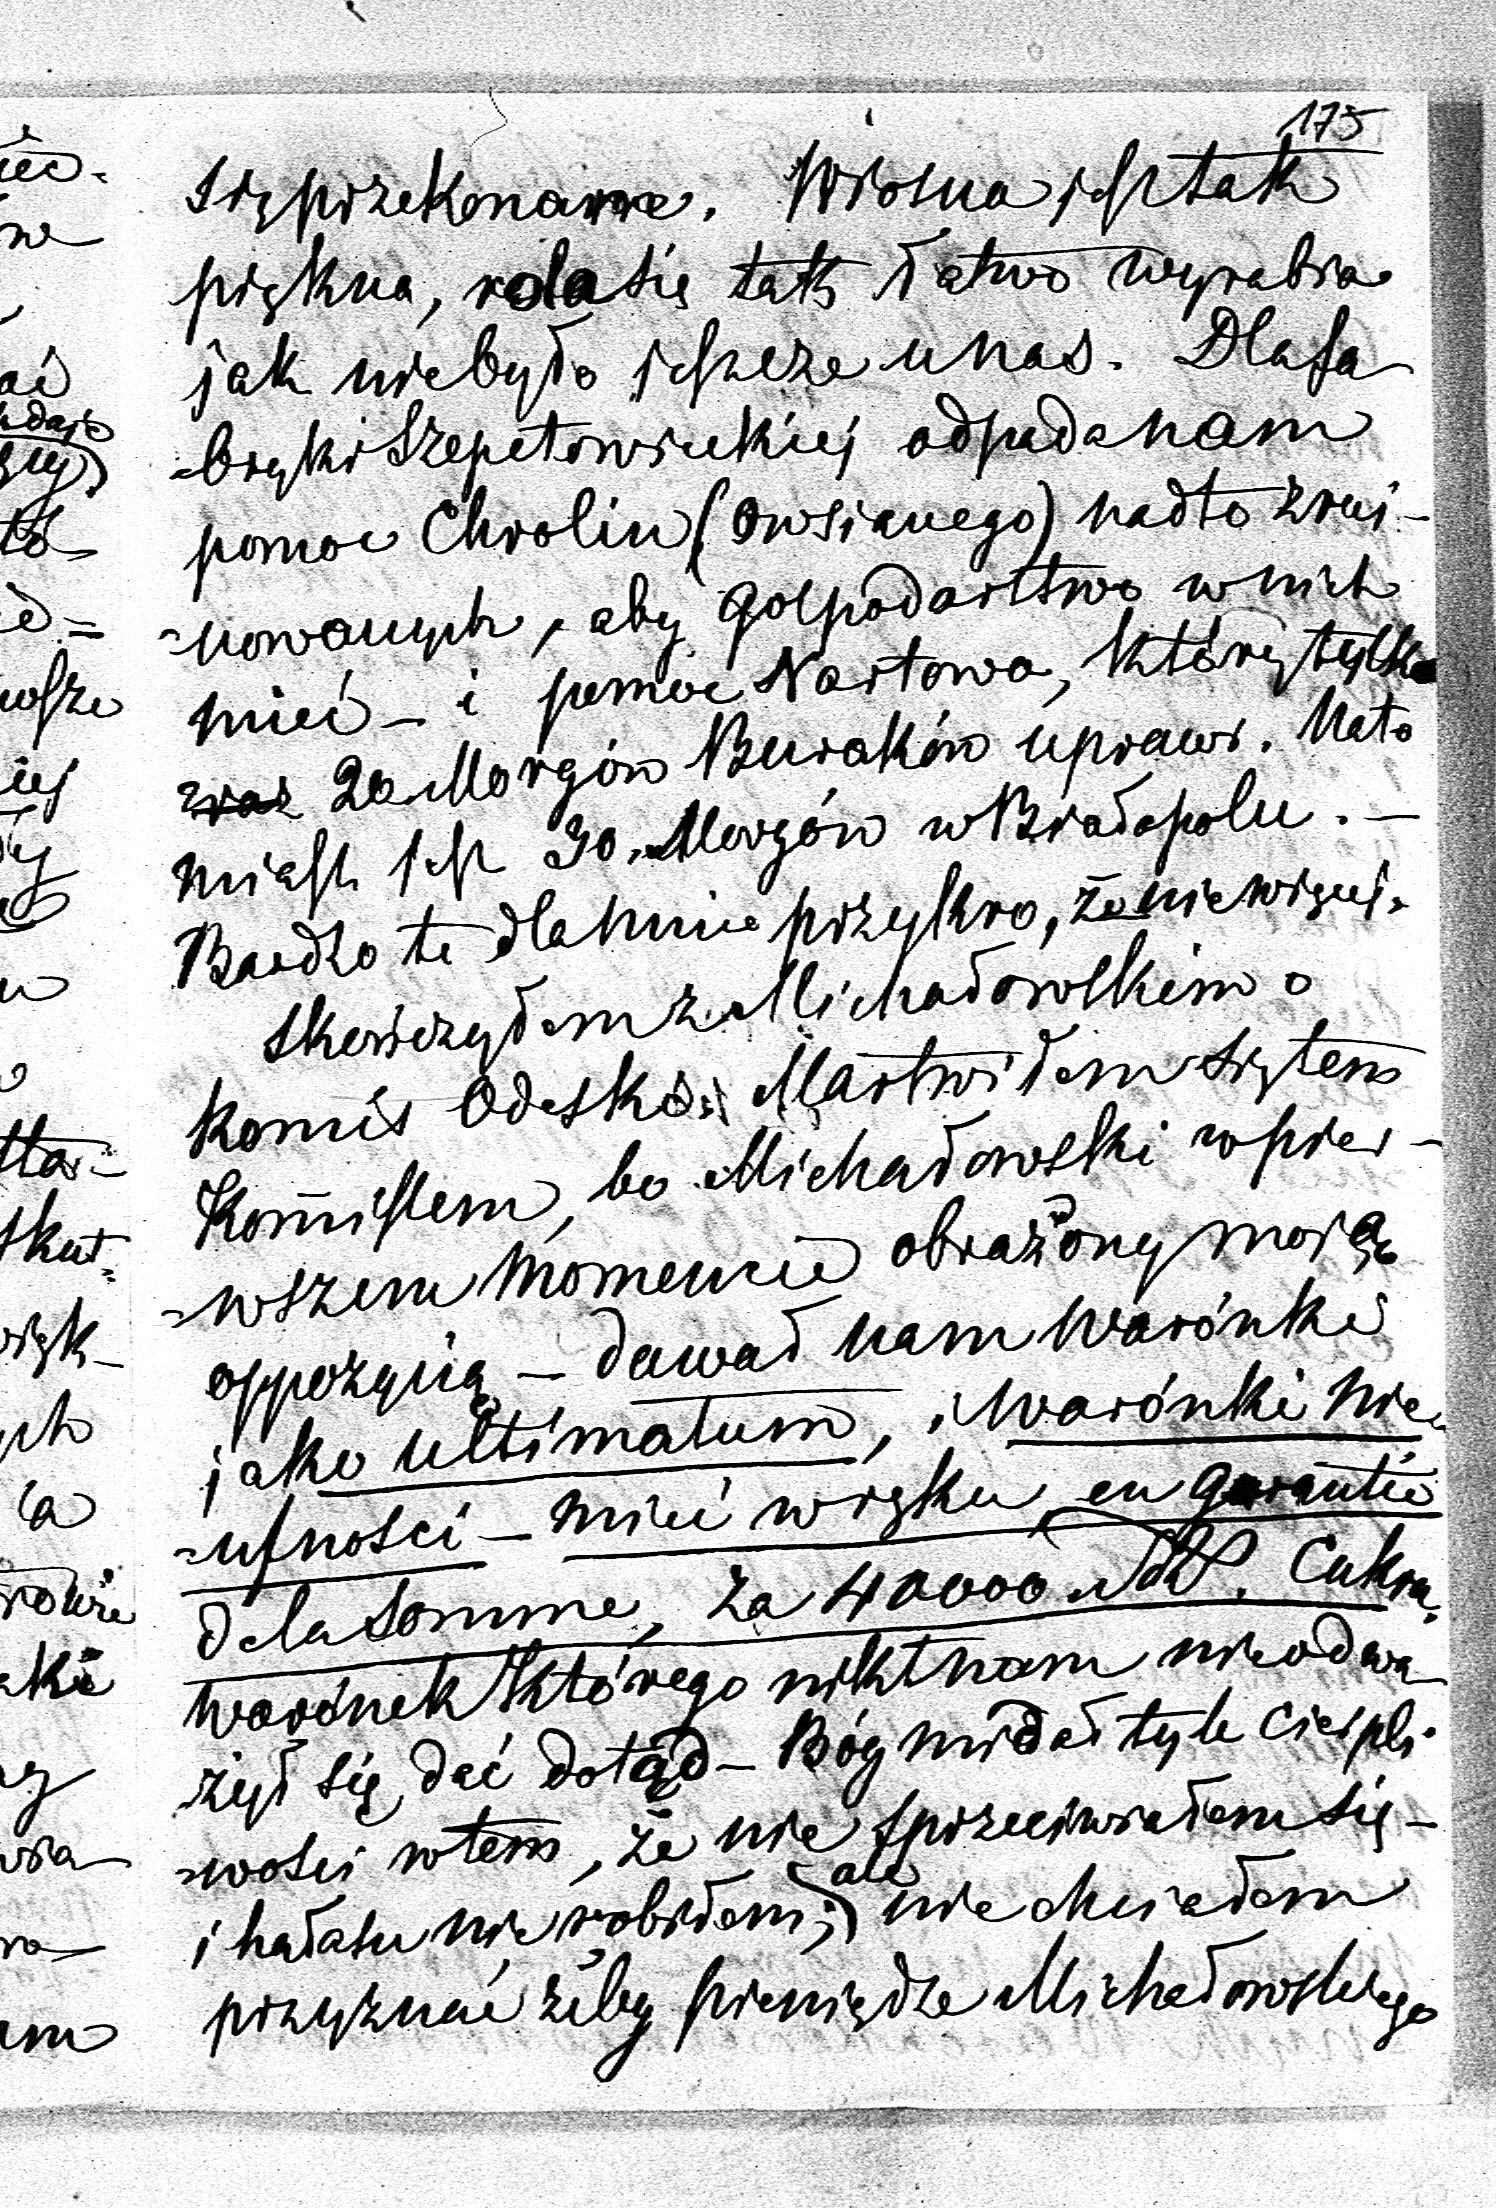 175
się przekonanie. Wiosna jest tak
piękna, rola się tak łatwo wyrabia
jak niebyło jeszcze u nas. Dla fa
-bryki Szepetowieckiej odpada nam
pomoc Chrolin (Owsianego) nadto zruj-
-nowanych, aby gospodarstwo w nich
mieć — i pomoc Nartowa, który tylko
20 Morgów Buraków uprawi. Nato
miast jest 30. Morgów w Białopolu. —
Bardzo te dla mnie przykro, że nie więcej.
Skończyłem z Michałowskim o
komis Odeski. Martwiłem się tem
Kommissem, bo Michałowski w pier-
-wszem momencie obrażony moją
oppozycią — dawał nam warónki
jako ultimatum, i warónki nie
-ufności — mieć w ręku en garantie
de la somme, za 40000 Rb. Cukru,
warónek którego nikt nam nie odwa
żył się dać dotąd — Bóg mi dał tyle cierpli
-wości w tem, że nie sprzeciwiałem się —
i hałasu nie robiłem; ale nie chciałem
przyznać żeby pieniądze Michałowskiego